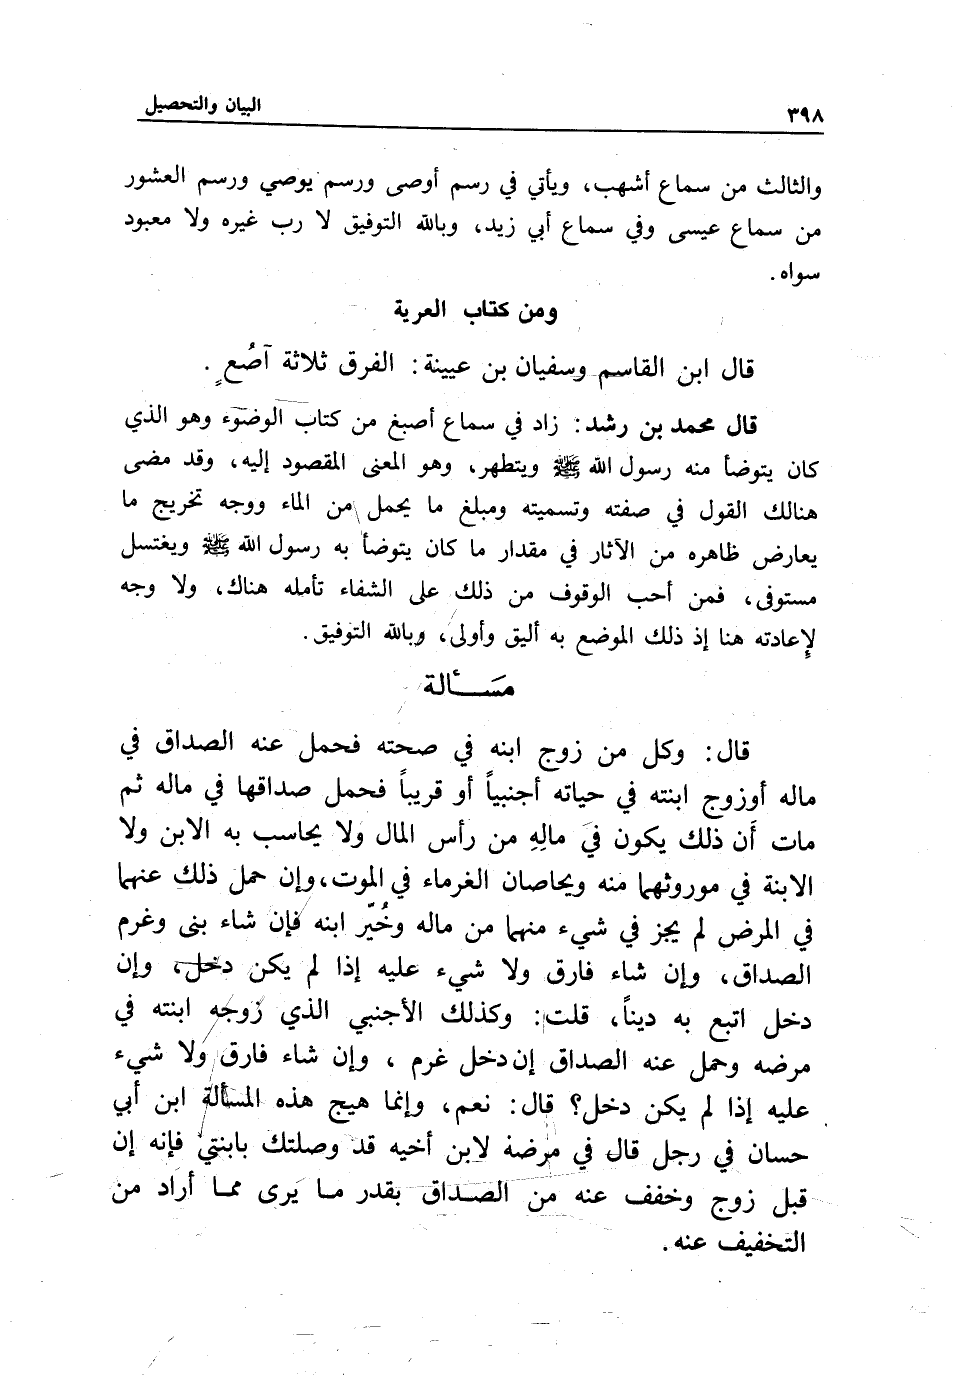 ٣٩٨
البيان والتحصيل
والثالث من سماع أشهب، ويأتي في رسم أوصى ورسم يوصي ورسم العشور
من سماع عيسى وفي سماع أبي زيد، وبالله التوفيق لا رب غيره ولا معبود
سواه.
ومن كتاب العرية
قال ابن القاسم وسفيان بن عيينة: الفرق ثلاثة آصُعٍ.
قال محمد بن رشد: زاد في سماع أصبغ من كتاب الوضوء وهو الذي
كان يتوضأ منه رسول الله ﷺ ويتطهر، وهو المعنى المقصود إليه، وقد مضى
هنالك القول في صفته وتسميته ومبلغ ما يحمل من الماء ووجه تخريج ما
يعارض ظاهره من الآثار في مقدار ما كان يتوضأ به رسول الله ﷺ ويغتسل
مستوفى، فمن أحب الوقوف من ذلك على الشفاء تأمله هناك، ولا وجه
لإعادته هنا إذ ذلك الموضع به أليق وأولى، وبالله التوفيق.
مَسَــأَلة
قال: وكل من زوج ابنه في صحته فحمل عنه الصداق في
ماله أوزوج ابنته في حياته أجنبياً أو قريباً فحمل صداقها في ماله ثم
مات أَن ذلك يكون في مالِهِ من رأس المال ولا يحاسب به الابن ولا
الابنة في موروثهما منه ويحاصان الغرماء في الموت، وإن حمل ذلك عنهما
في المرض لم يجز في شيء منهما من ماله وخُيّر ابنه فإن شاء بنى وغرم
الصداق، وإن شاء فارق ولا شيء عليه إذا لم يكن دخل، وإن
دخل اتبع به ديناً، قلت: وكذلك الأجنبي الذي زَوجه ابنته في
مرضه وحمل عنه الصداق إن دخل غرم ، وإن شاء فارق ولا شيء
عليه إذا لم يكن دخل؟ قال: نعم، وإنما هيج هذه المسألة ابن أبي
حسان في رجل قال في مرضة لابن أخيه قد وصلتك بابنتي فإنه إن
قبل زوج وخفف عنه من الصداق بقدر ما يرى مما أراد من
التخفيف عنه.